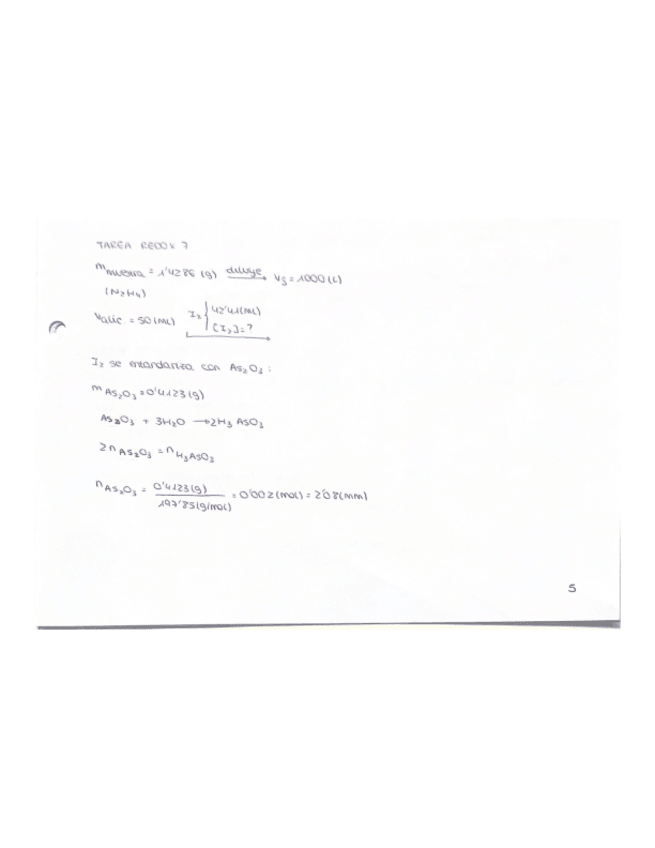 TAREA REDOX 7
m muestra = 1'4286 (g) diluye → V_f = 1000 (L)
(N₂H₄)
Valic = 50 (mL) I₂ { 42'41 (mL)
[I₂] = ?
I₂ se estandariza con As₂O₃ :
m As₂O₃ = 0'4123 (g)
As₂O₃ + 3H₂O → 2H₃AsO₃
2 n As₂O₃ = n H₃AsO₃
n As₂O₃ = 0'4123 (g) / 197'85 (g/mol) = 0'002 (mol) = 2'08 (mm)
5